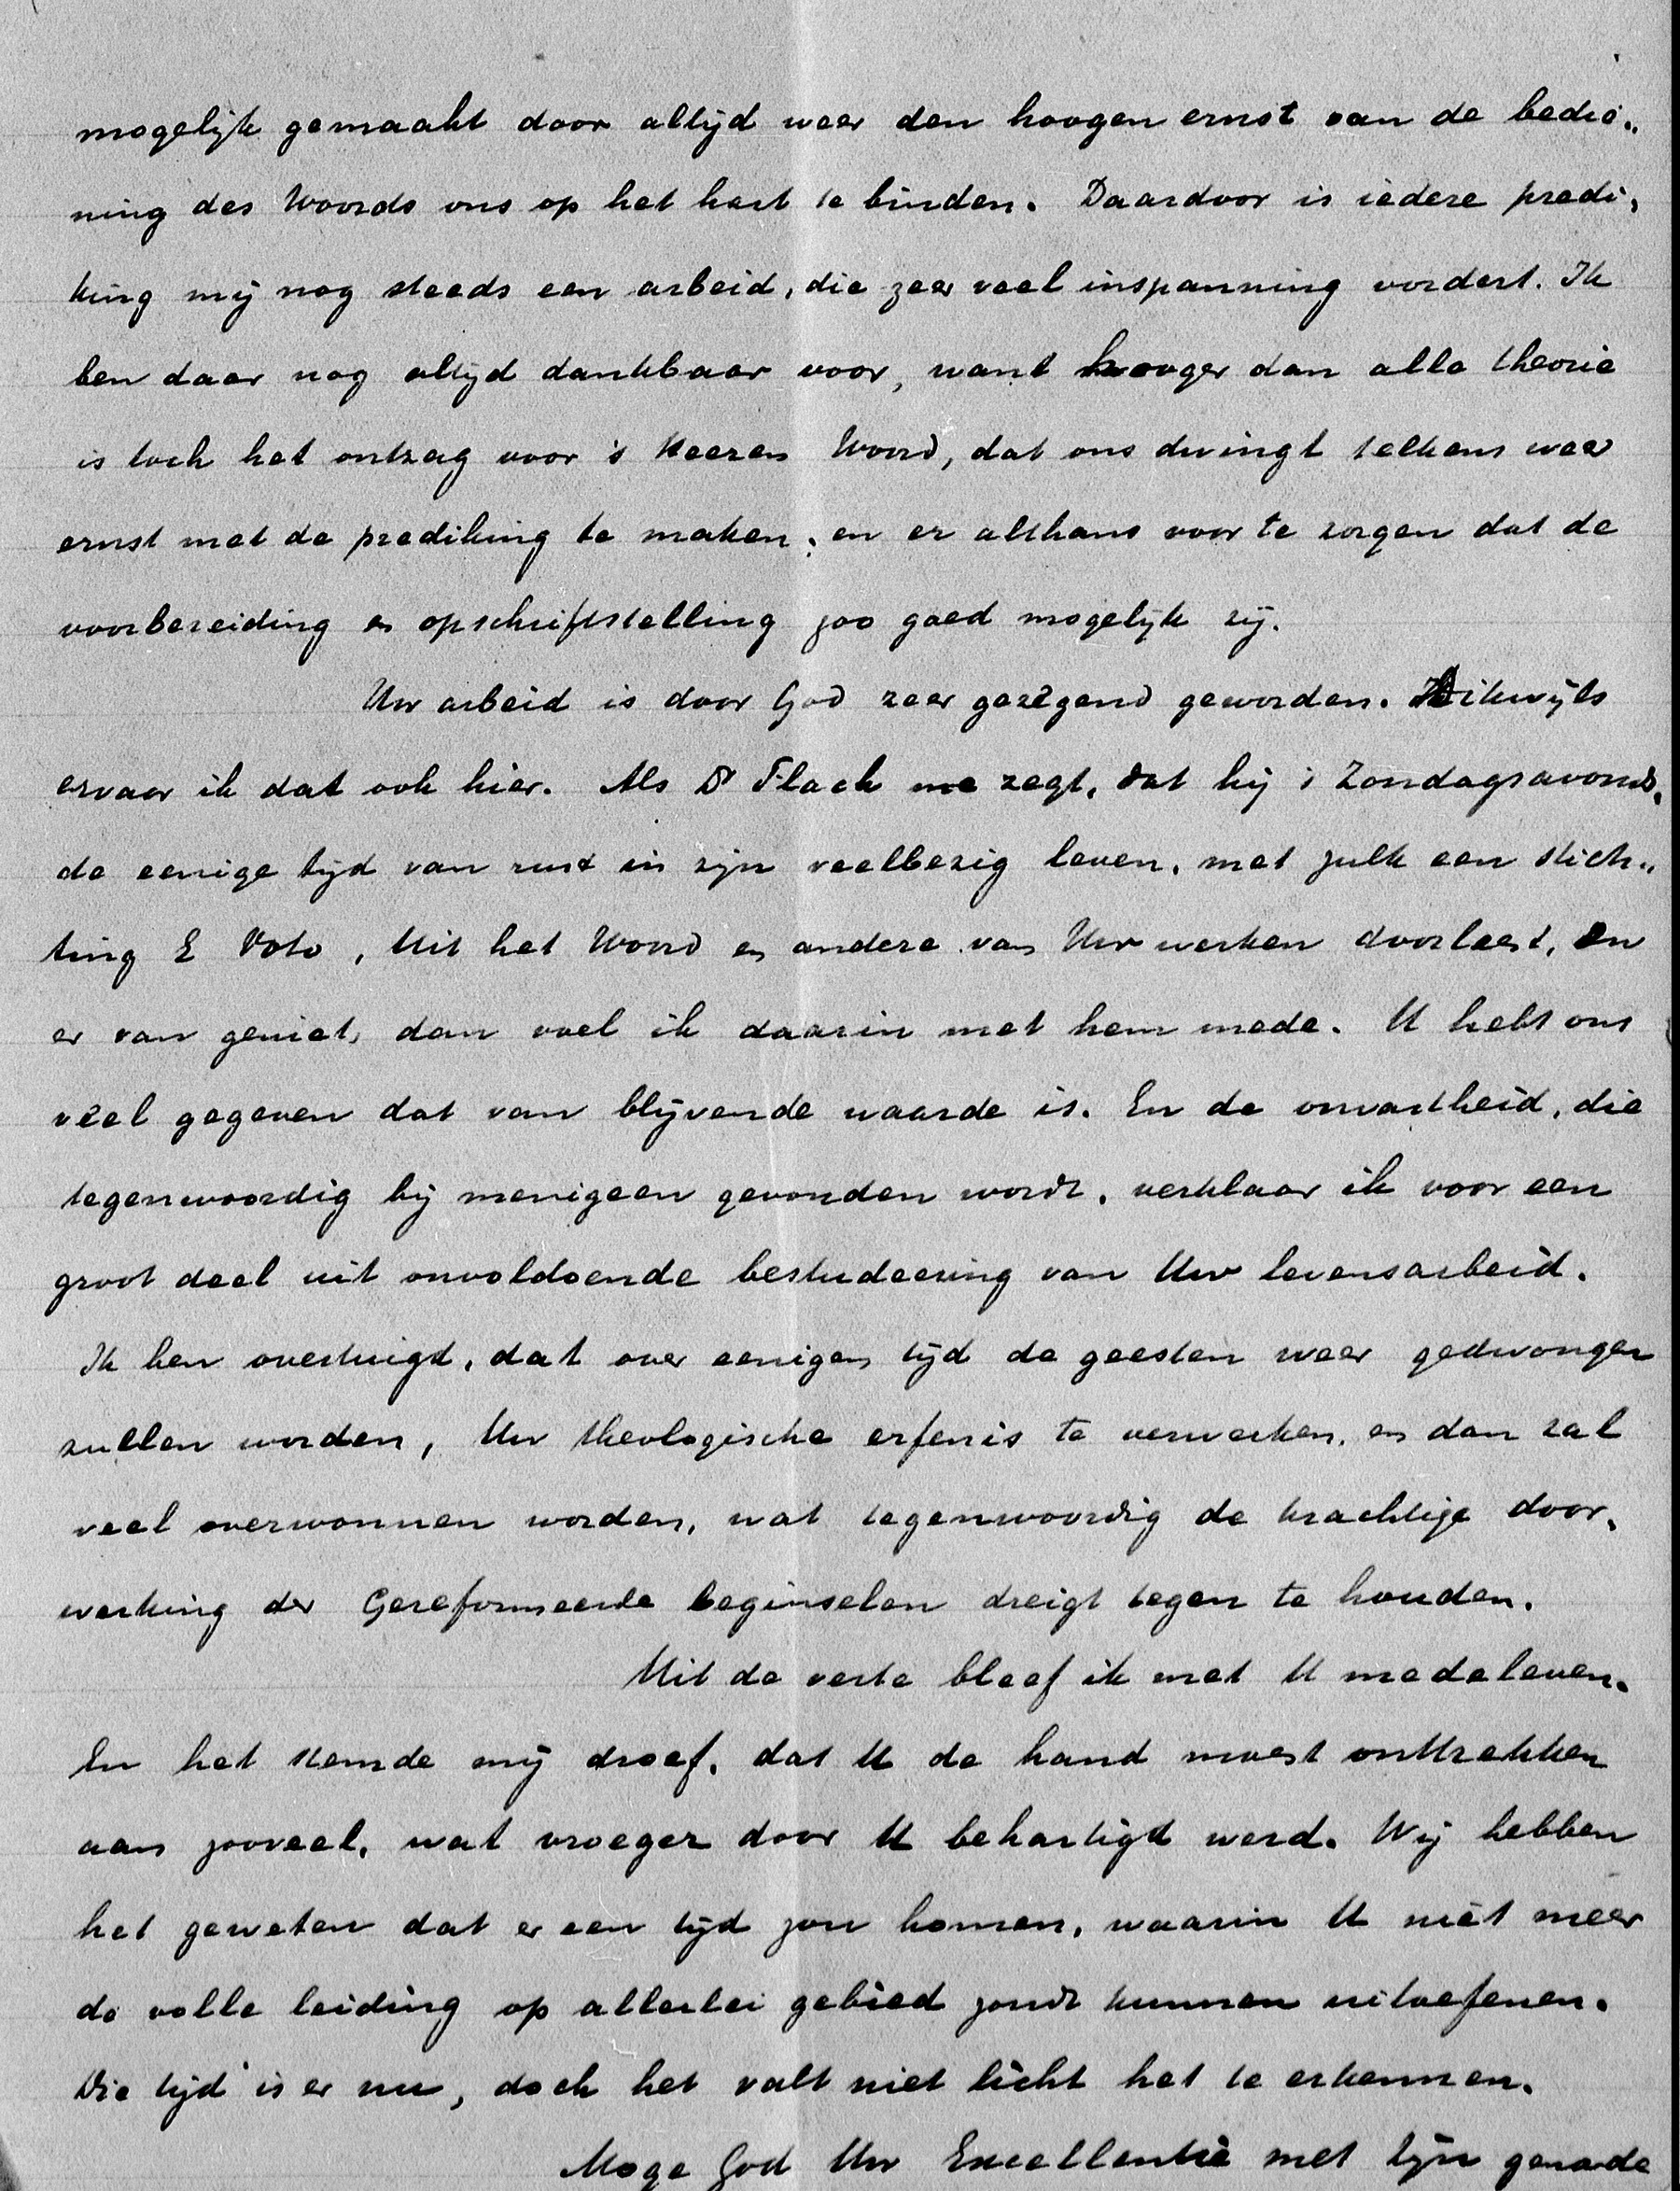 mogelijk gemaakt door altijd weer den hoogen ernst van de bedie„
ning des Woords ons op het hart te binden. Daardoor is iedere predi„
king mij nog steeds een arbeid, die zeer veel inspanning vordert. Ik
ben daar nog altijd dankbaar voor, want hooger dan alle theorie
is toch het ontzag voor 's Heeren Woord, dat ons dwingt telkens weer
ernst met de prediking te maken, en er althans voor te zorgen dat de
voorbereiding en opschriftstelling zoo goed mogelijk zij.
Uw arbeid is door God zeer gezegend geworden. Dikwijls
ervaar ik dat ook hier. Als Dr Flach me zegt, dat hij 's Zondagsavonds,
de eenige tijd van rust in zijn veelbezig leven, met zulk een stich„
ting E Voto, Uit het Woord en andere van Uw werken doorleest, en
er van geniet, dan voel ik daarin met hem mede. U hebt ons
veel gegeven dat van blijvende waarde is. En de onvastheid, die
tegenwoordig bij menigeen gevonden wordt, verklaar ik voor een
groot deel uit onvoldoende bestudeering van Uw levensarbeid.
Ik ben overtuigd, dat over eenigen tijd de geesten weer gedwongen
zullen worden, Uw theologische erfenis te verwerken, en dan zal
veel overwonnen worden, wat tegenwoordig de krachtige door„
werking der Gereformeerde beginselen dreigt tegen te houden.
Uit de verte bleef ik met U medeleven.
En het stemde mij droef, dat U de hand moest onttrekken
aan zooveel, wat vroeger door U behartigd werd. Wij hebben
het geweten dat er een tijd zou komen, waarin U niet meer
de volle leiding op allerlei gebied zoudt kunnen uitoefenen.
Die tijd is er nu, doch het valt niet licht het te erkennen.
Moge God Uw Excellentie met Zijn genade